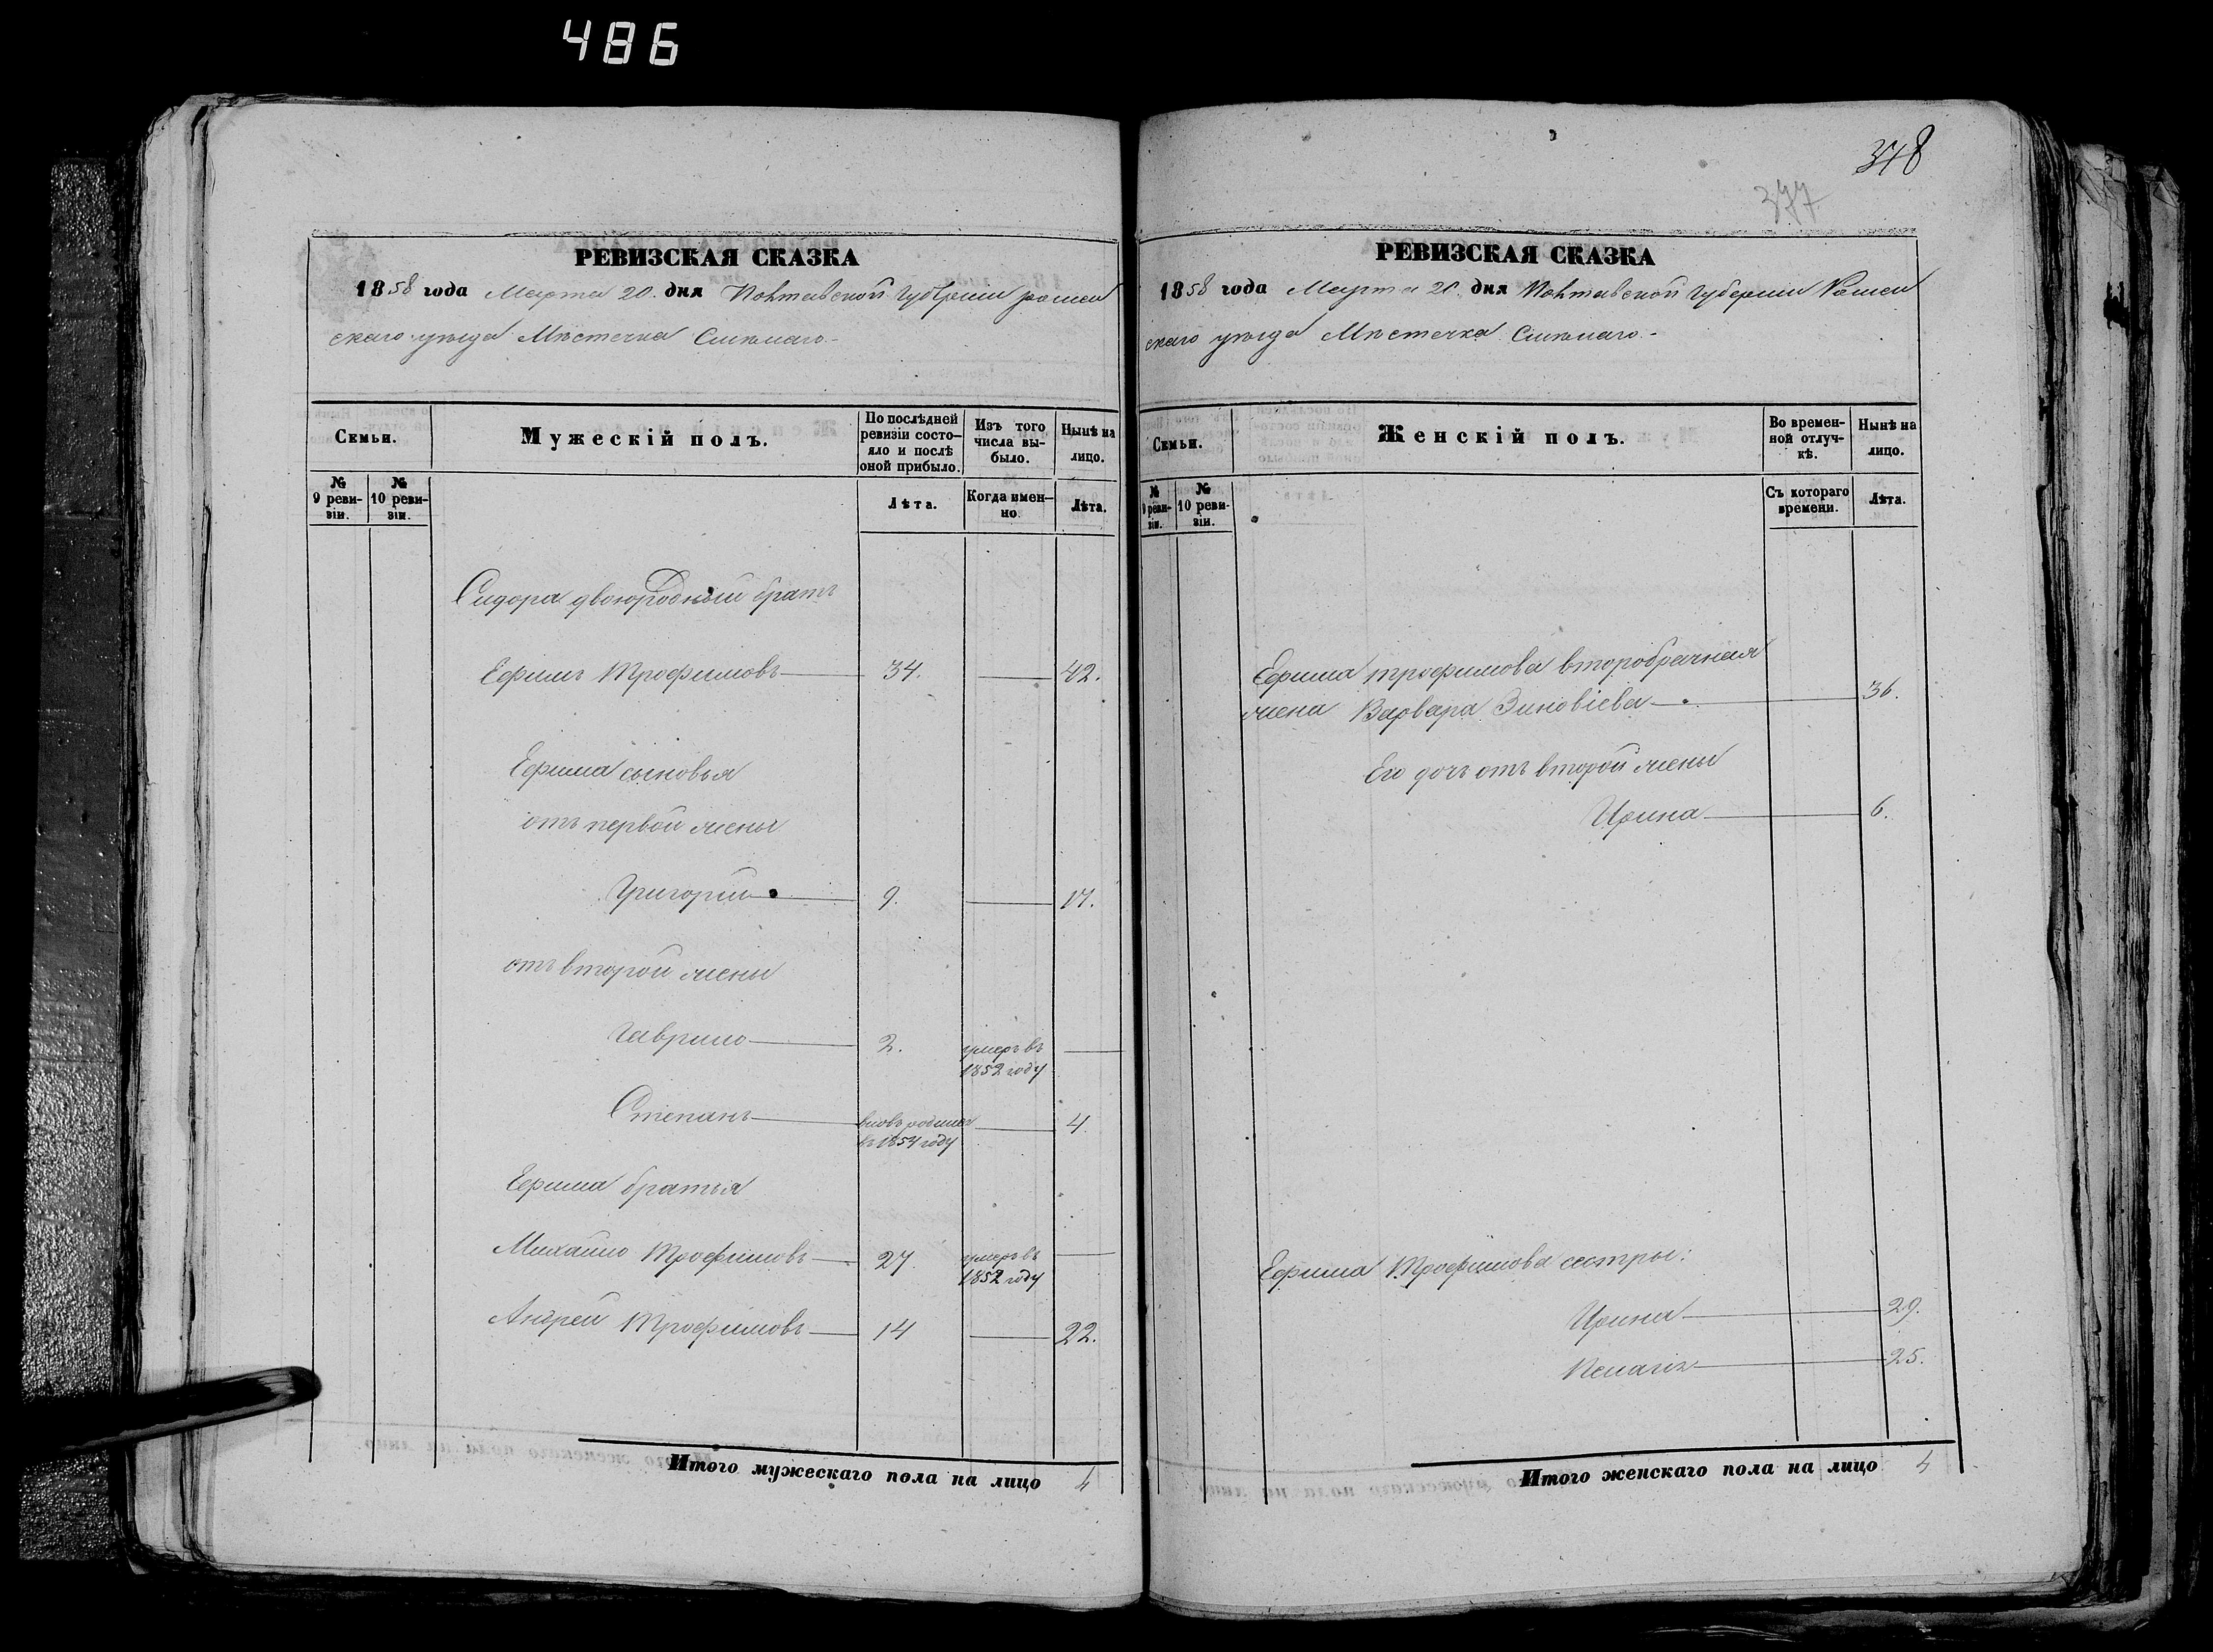 486
РЕВИЗСКАЯ СКАЗКА
1858 года Марта 20. дня Полтавской Губерніи ромен
скаго уѣзда Мѣстечка Смѣлаго.
Семьи.
Мужескій полъ.
По послѣдней ревизіи состо-
яло и послѣ
оной прибыло.
Изъ того
числа вы-
было.
Нынѣ на
лицо.
№
9 реви-
зіи.
№
10 реви-
зіи.
Лѣта.
Когда имен-
но.
Лѣта.
Сидора двоюродный братъ
Ефимъ Трофимовъ 34. 42.
Ефима сыновья
отъ первой жены
Григорій 9. 17.
отъ второй жены
Гаврило 2. умеръ въ
1852 году
Степанъ вновь родился
въ 1854 году 4.
Ефима братья
Михайло Трофимовъ 27. умеръ въ
1852 году
Андрей Трофимовъ 14 22.
Итого мужескаго пола на лицо 4
378
377
РЕВИЗСКАЯ СКАЗКА
1858 года Марта 20. дня Полтавской Губерніи Ромен
скаго уѣзда Мѣстечка Смѣлаго.
Семьи.
Женскій полъ.
Во времен-
ной отлуч-
кѣ.
Нынѣ на
лицо.
№
9 реви-
зіи.
№
10 реви-
зіи.
Съ котораго
времени.
Лѣта.
Ефима трофимова второбрачная
жена Варвара Зиновіева 36.
Его дочь отъ второй жены
Ирина 6.
Ефима Трофимова сестры:
Ирина 29.
Пелагія 25.
Итого женскаго пола на лицо 4